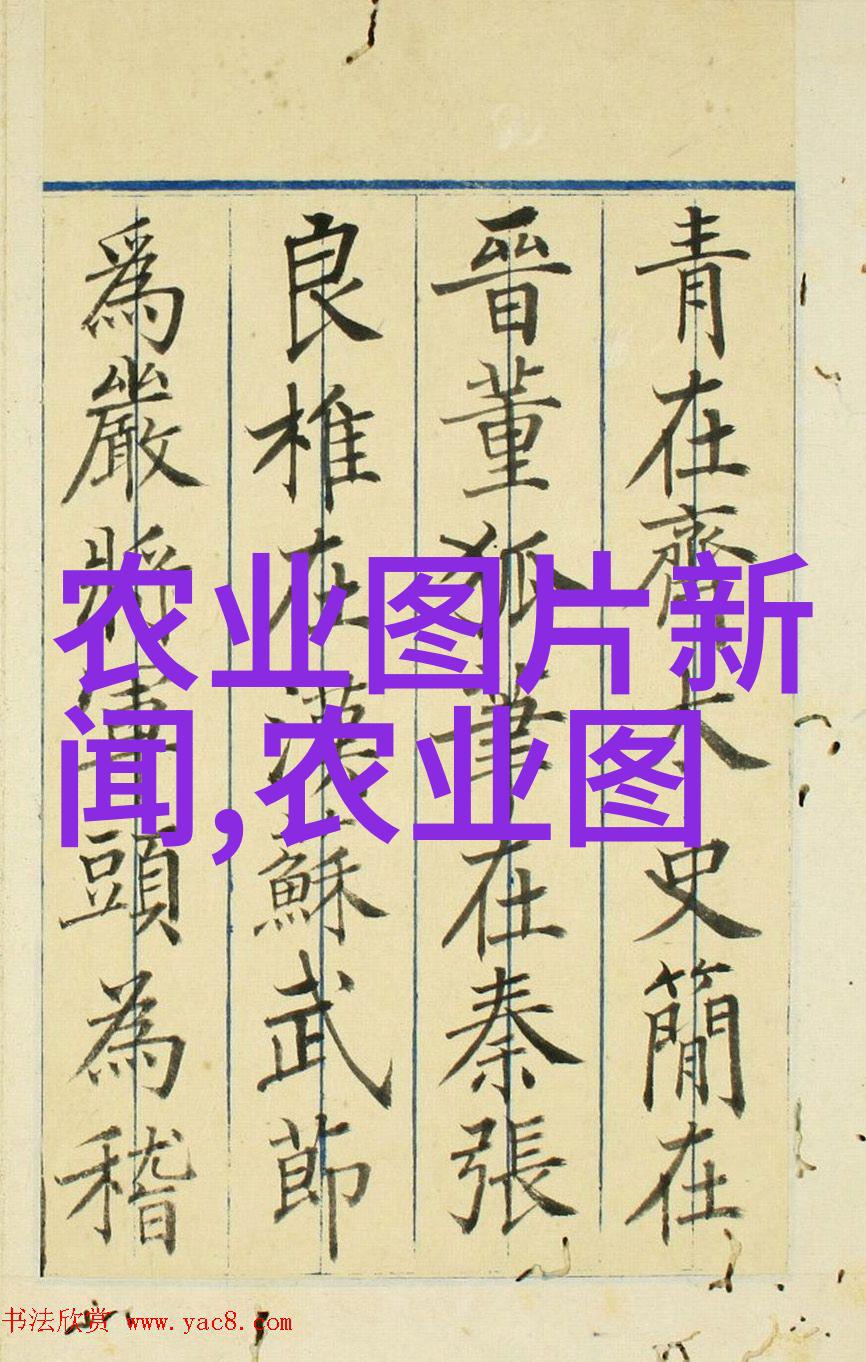 青在齊太史簡在
晉董狐筆在秦張
良椎在漢蘇武節
爲嚴將軍頭為稽
农业图片新
闻,农业图
书法欣赏 www.yac8.com